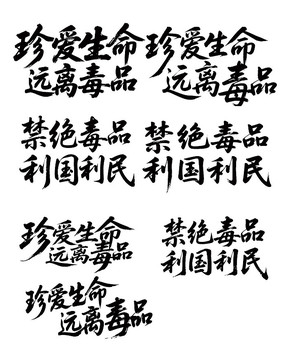 珍爱生命 珍爱生命
远离毒品 远离毒品
禁绝毒品 禁绝毒品
利国利民 利国利民
珍爱生命 禁绝毒品
远离毒品 利国利民
珍爱生命
远离毒品